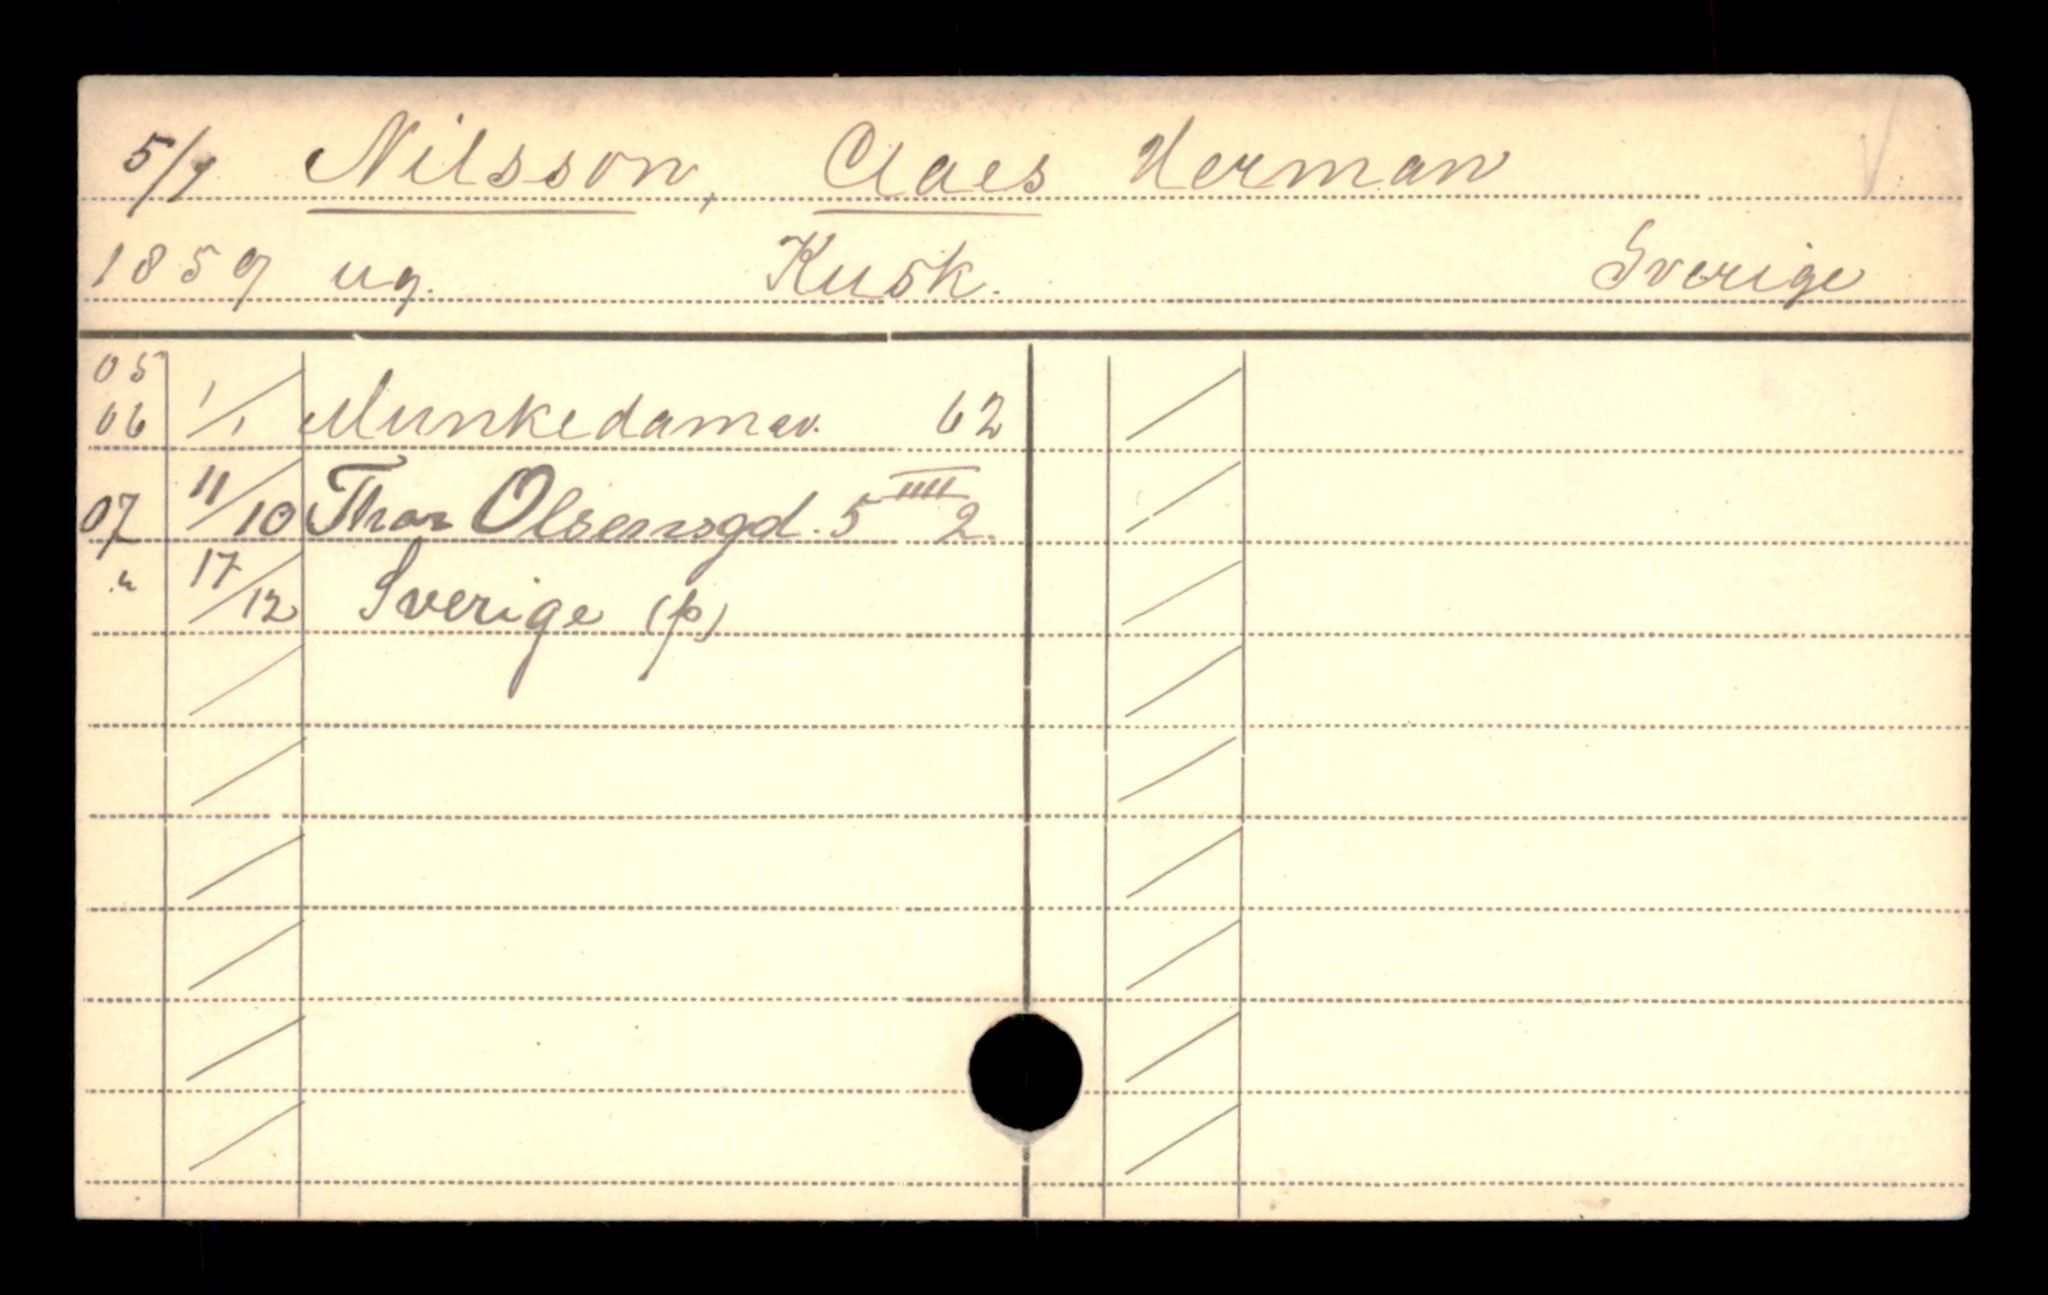 5/9 Nilsson, Claes Herman
1859 ug. Kusk. Sverige
05
06 1/1 Munkedamsv. 62
07 11/10 Thor Olsensgd. 5 IIII 2.
" 17/12 Sverige (p)